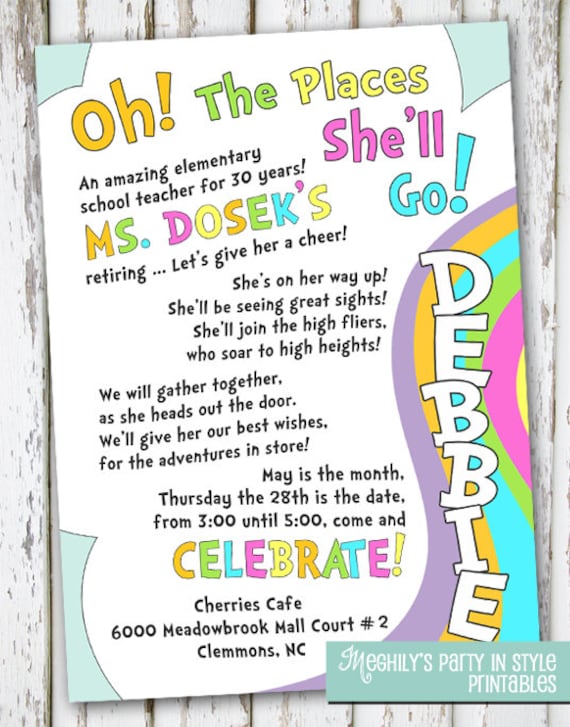 Oh! The Places
She'll
Go!
An amazing elementary
school teacher for 30 years!
MS. DOSEK'S
retiring ... Let's give her a cheer!
She's on her way up!
She'll be seeing great sights!
She'll join the high fliers,
who soar to high heights!
We will gather together,
as she heads out the door.
We'll give her our best wishes,
for the adventures in store!
May is the month,
Thursday the 28th is the date,
from 3:00 until 5:00, come and
CELEBRATE!
Cherries Cafe
6000 Meadowbrook Mall Court # 2
Clemmons, NC
DEBBIE
MEGHILY'S PARTY IN STYLE
PRINTABLES